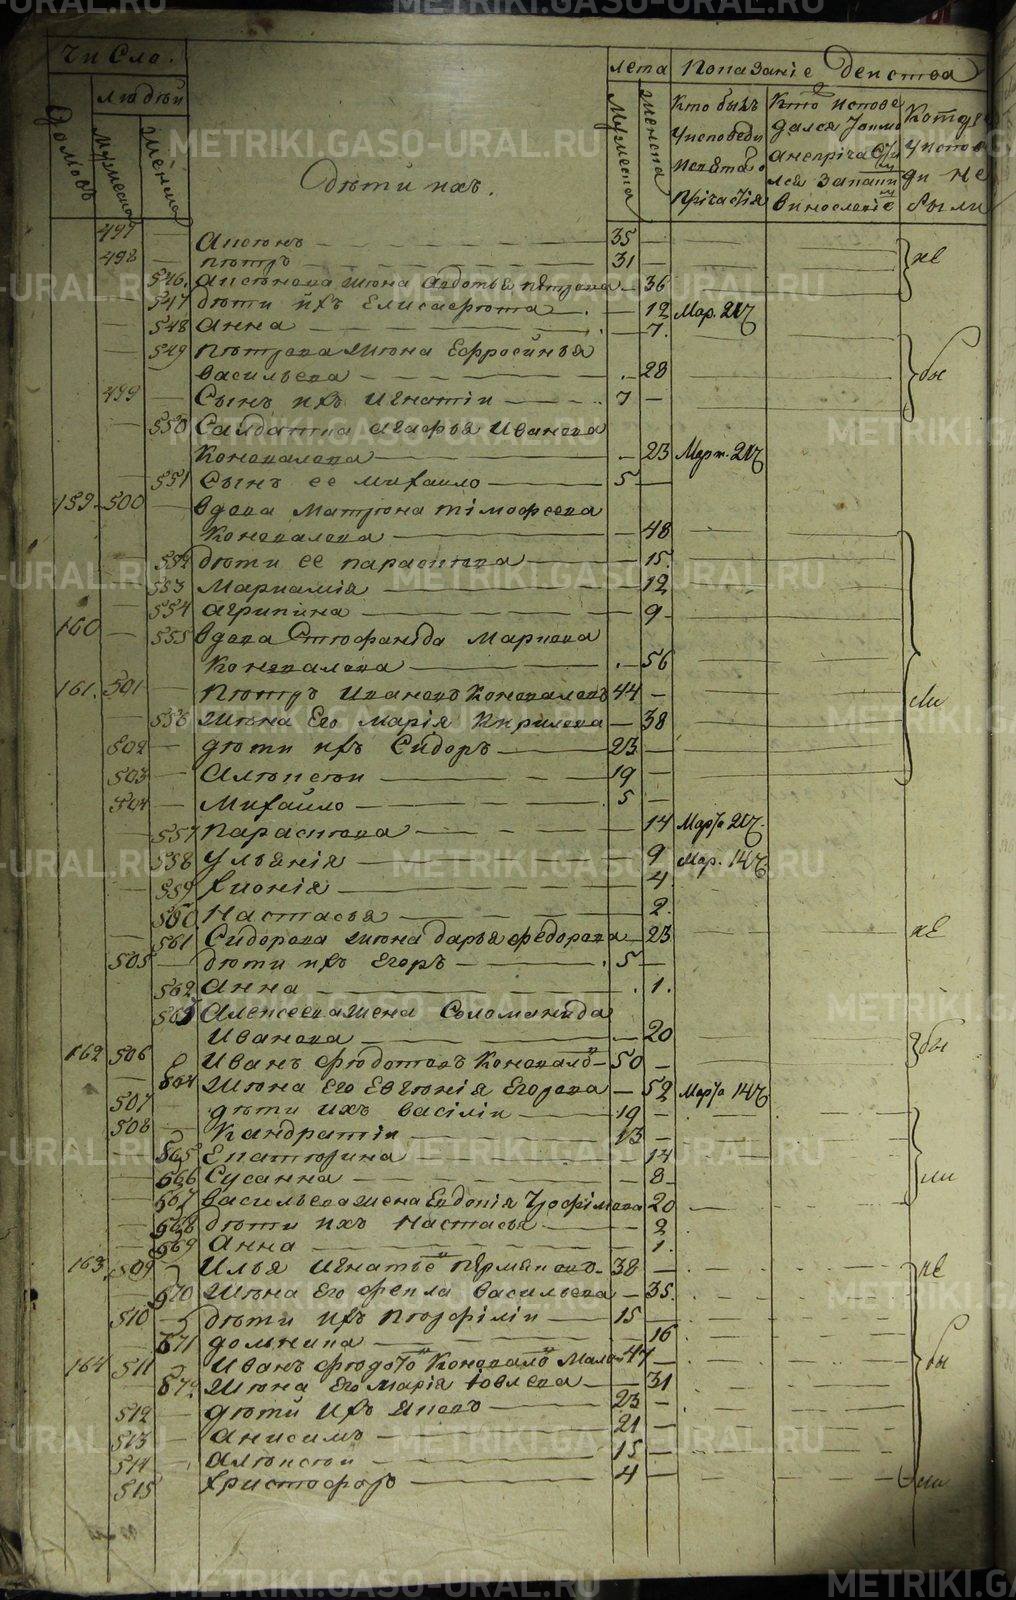 Числа.
лета Показание действа
людей
Домовъ
мужеска
женска
Дети ихъ.
мужеска
женска
Кто былъ
у исповеди
и святаго
причастия
Кто исповедался
токмо
а не причастился
за каким
винословіе
Которые
у исповеди
не
были
497 — Аксенъ — 35 —
498 — Петръ — 31 —
не
546 Аксенова жена Авдотья Петрова — 36
547 дети ихъ Елисавета — 12 Мар. 21
548 Анна — 7
549 Петрова жена Ефросинья
Васильева — 28
бы
499 — Сынъ ихъ Игнатіи — 7 —
550 Салдатка Агафья Иванова
Коновалова — 23 Март. 21
551 Сынъ ее Михайло — 5 —
159 500 — вдова Матрона Тимофеева
Коновалова — 48
552 дети ее Парасковa — 15
553 Мариамія — 12
554 Агрипина — 9
160 — 555 вдова Стефанида Маркова
Коновалова — 56
161 501 — Петръ Ивановъ Коноваловъ 44 —
ли
556 жена Его Марія Кирилова — 38
502 — дети ихъ Сидоръ — 23 —
503 — Алексеи — 19 —
504 — Михайло — 5 —
557 Парасковa — 14 Марта 21
558 Ульянія — 9 Мар. 14
559 Хионія — 4
560 Настасья — 2
561 Сидорова жена Дарья Федорова — 23
не
505 — дети ихъ Егоръ — 5 —
562 Анна — 1
563 Алексеева жена Соломанида
Иванова — 20
бы
162 506 Иванъ Федотовъ Коновало — 50 —
564 жена Его Евгенія Егорова — 52 Марта 14
507 — дети ихъ Василіи — 19 —
508 — Кандратіи — 13 —
565 Екатерина — 14
566 Сусанна — 8
ли
567 Васильева жена Евдокія Трофимова 20
568 дети ихъ Настасья — 2
569 Анна — 1
163 509 — Илья Игнатье Пермяковъ 38 —
не
570 жена Его Фекла Васильева — 35
510 — дети ихъ Перфіліи — 15 —
571 — 16
бы
164 511 Иванъ Федото Коновало Мало 47 —
572 жена Его Марія Іовлева — 31
512 — дети ихъ Яковъ — 23 —
513 — Анисимъ — 21 —
514 — Алексеи — 15 —
515 Христофоръ — 4 —
ли
METRIKI.GASO-URAL.RU